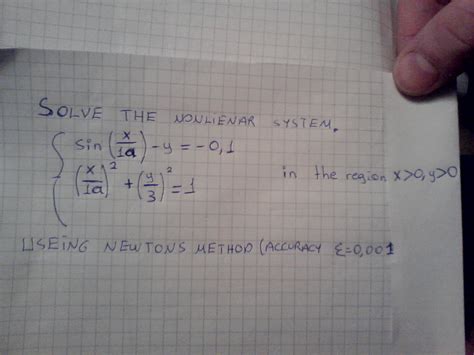 SOLVE THE NONLIENAR SYSTEM.
{ sin(x/1a) - y = -0,1
(x/1a)² + (y/3)² = 1 in the region x>0, y>0
USEING NEWTONS METHOD (ACCURACY ε=0,001